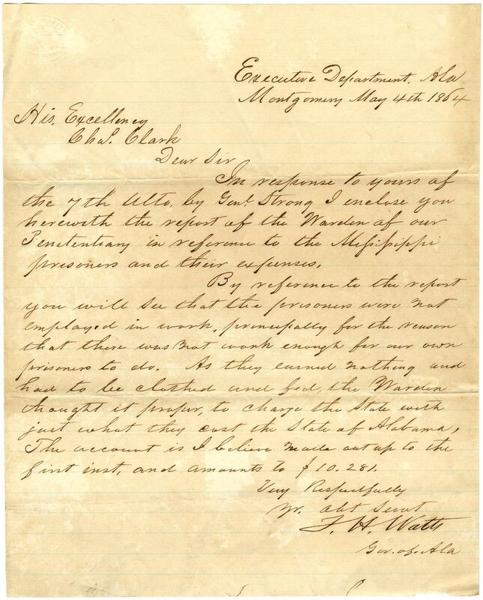 Executive Department, Ala
Montgomery May 4th 1864
His Excellency
Chas. Clark
Dear Sir
In response to yours of
the 7th Ulto. by Genl. Strong I enclose you
herewith the report of the Warden of our
Penitentiary in reference to the Missippippi
prisoners and their expenses.
By reference to the report
you will see that the prisoners were not
employed in work, principally for the reason
that there was not work enough for our own
prisoners to do. As they earned nothing and
had to be clothed and fed the Warden
thought it proper, to charge the State with
just what they cost the State of Alabama,
The account is I believe made out up to the
first inst, and amounts to $10.281.
Very Respectfully
Yr. Obt Servt
T. H. Watts
Gov. of. Ala